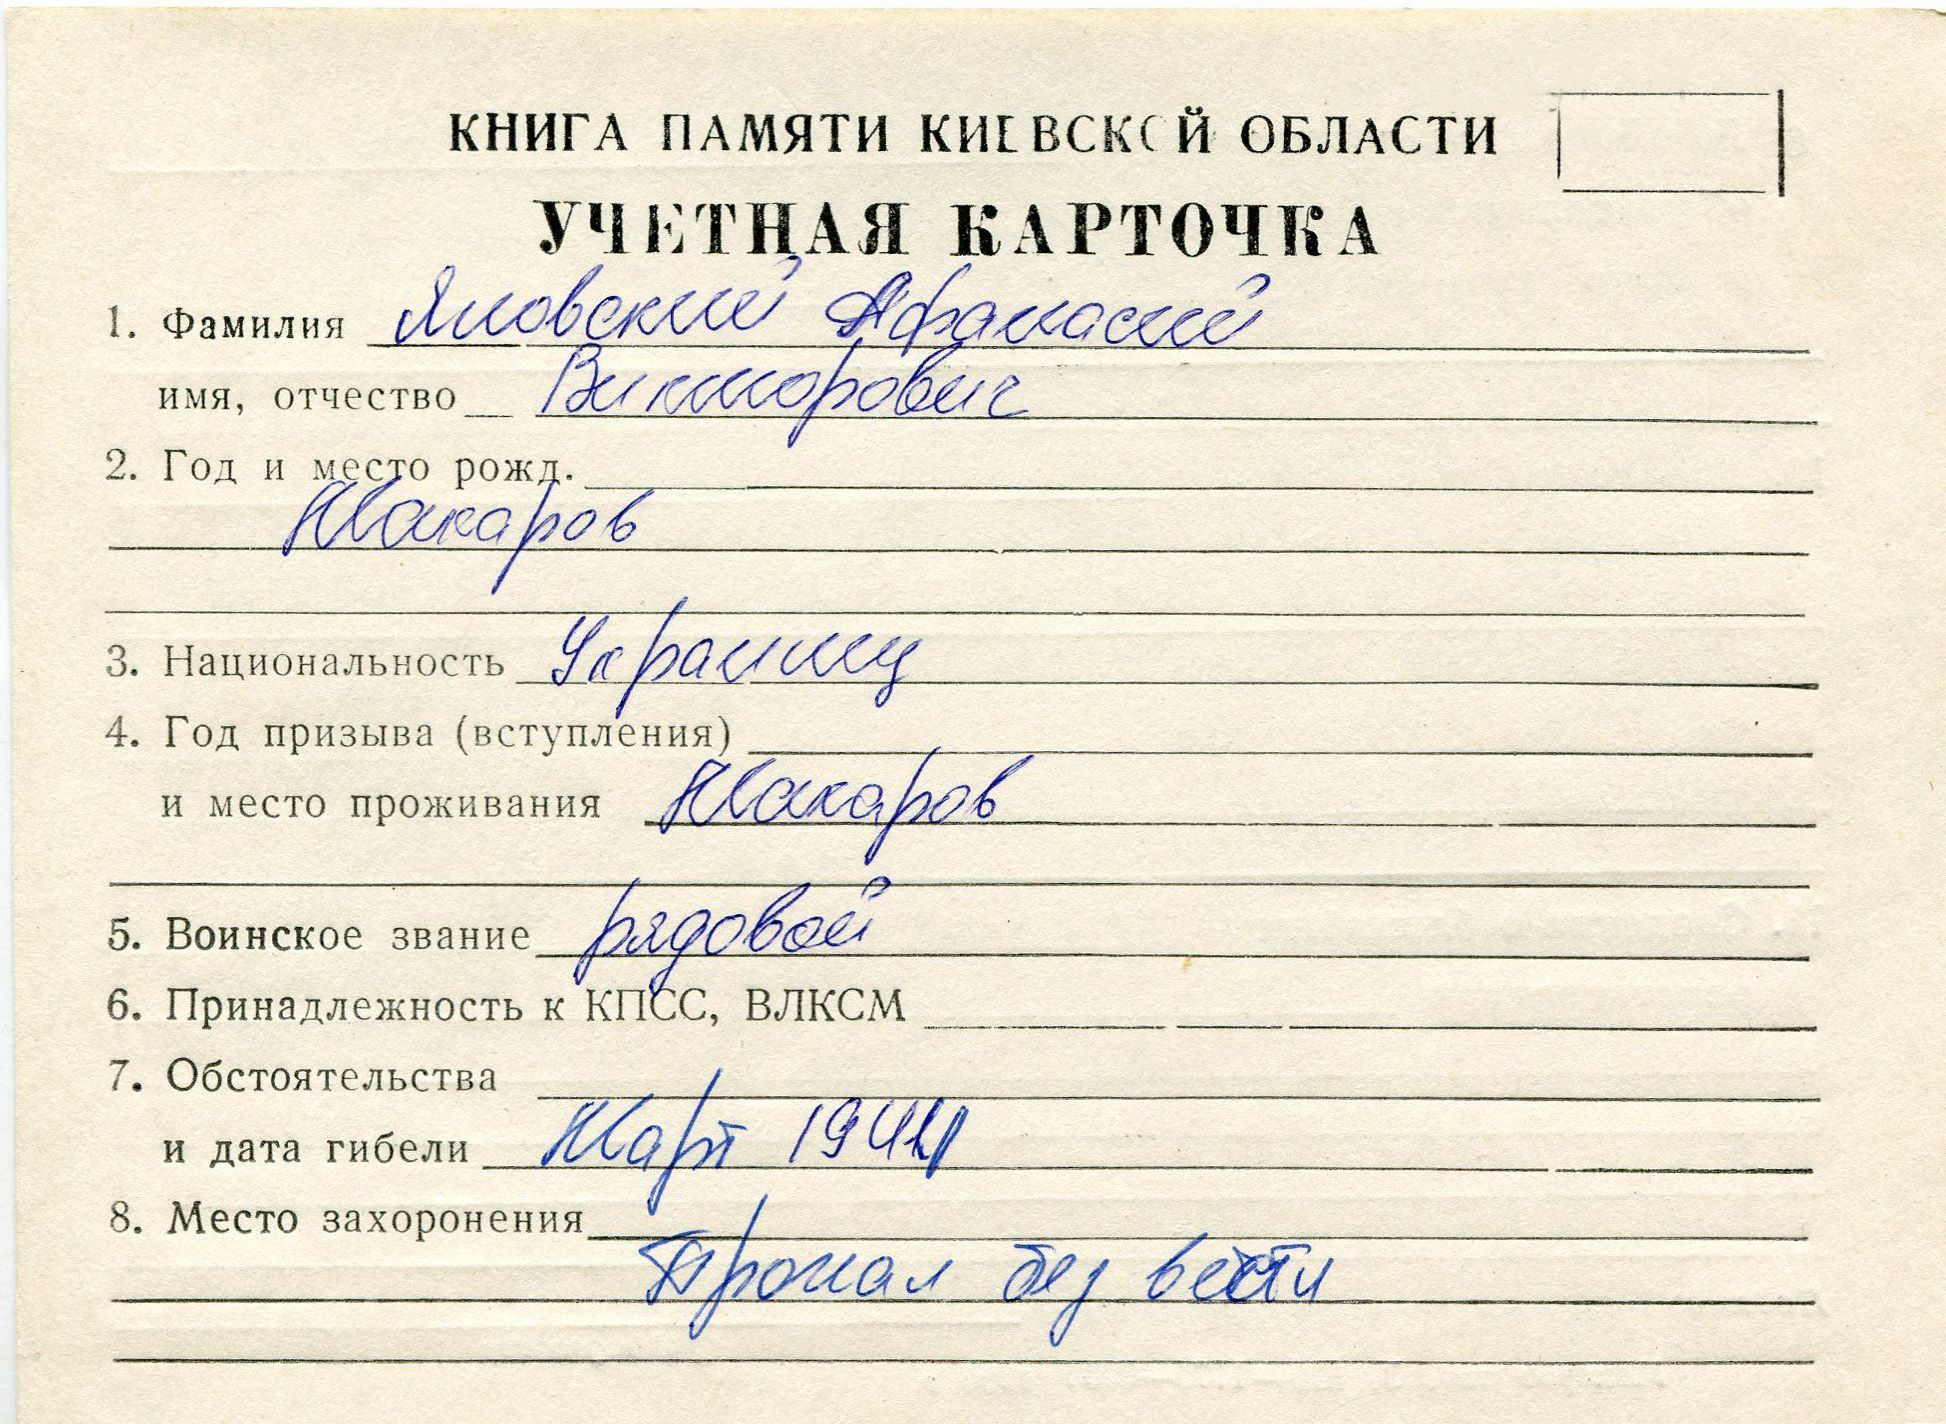 КНИГА ПАМЯТИ КИЕВСКОЙ ОБЛАСТИ
УЧЕТНАЯ КАРТОЧКА
1. Фамилия Яловский Афанасий
имя, отчество Викторович
2. Год и место рожд.
Макаров
3. Национальность Украинец
4. Год призыва (вступления)
и место проживания Макаров
5. Воинское звание рядовой
6. Принадлежность к КПСС, ВЛКСМ
7. Обстоятельства
и дата гибели Март
8. Место захоронения
Пропал без вести